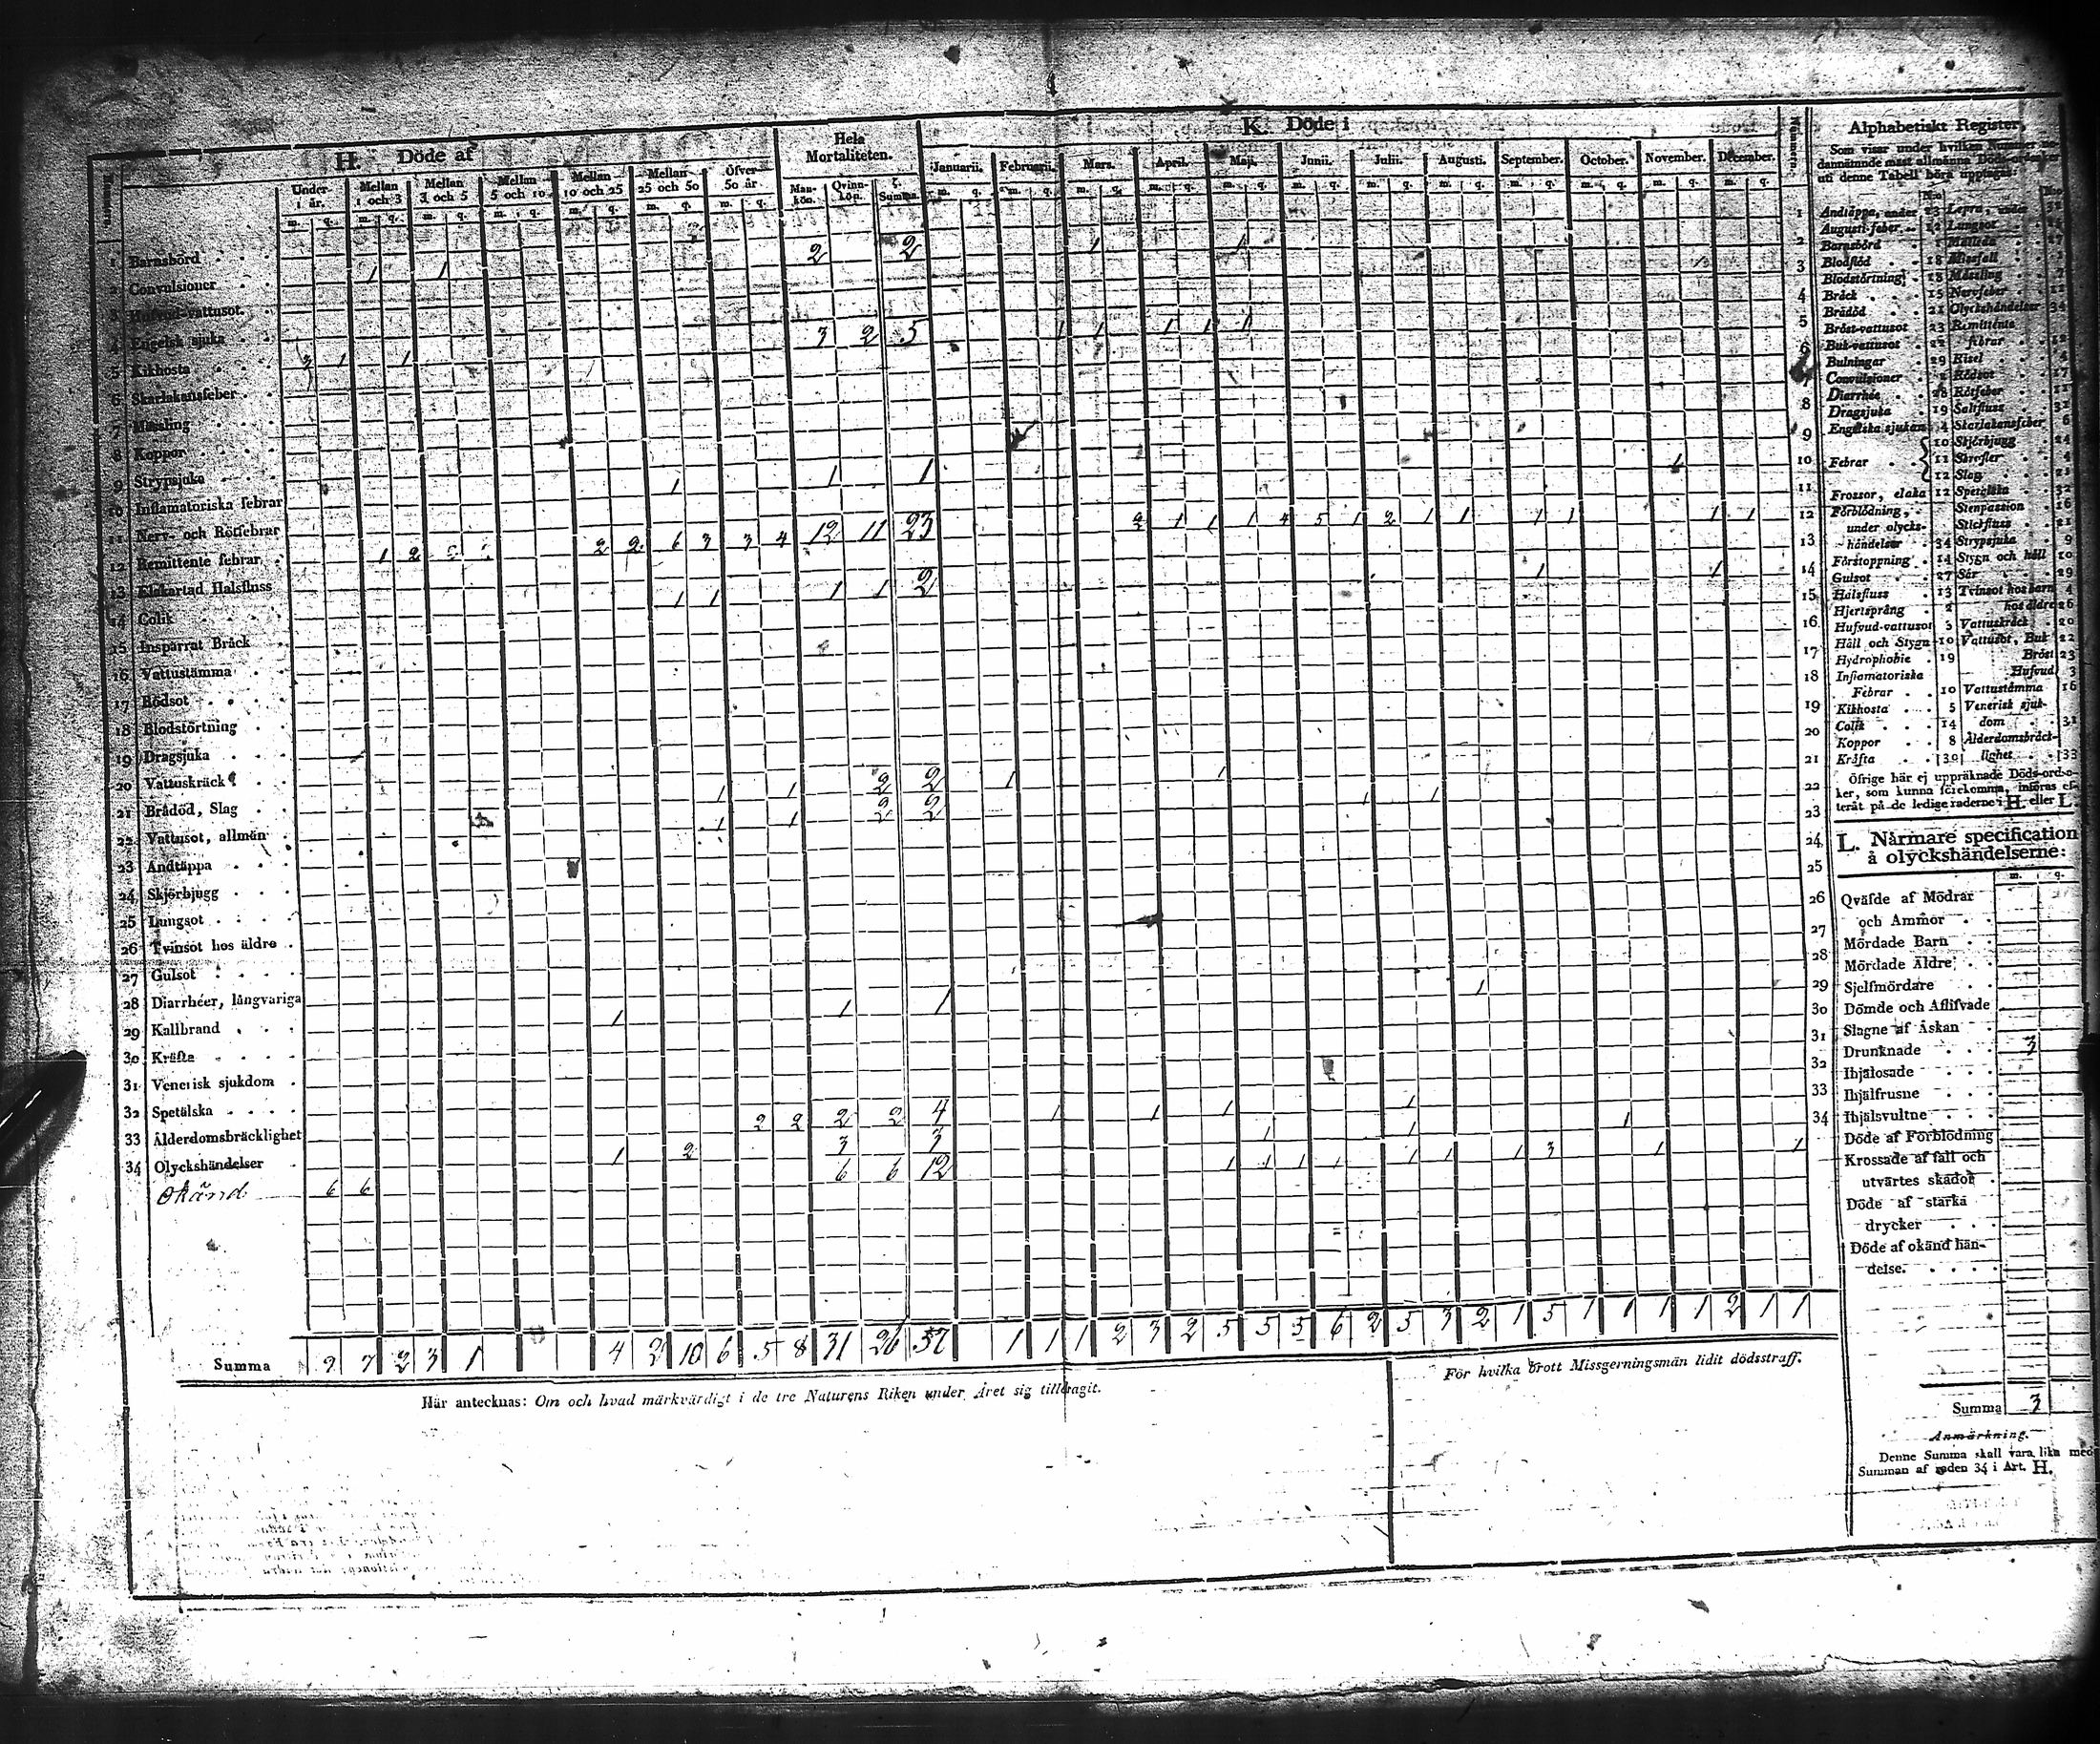 H. Döde af
Hela Mortaliteten.
K. Döde i
Under 1 år. Mellan 1 och 3 Mellan 3 och 5 Mellan 5 och 10 Mellan 10 och 25 Mellan 25 och 50 Öfver 50 år. Man-kön. Qvinn-kön. Summa. Januarii. Februarii. Mars. April. Maji. Junii. Julii. Augusti. September. October. November. December.
1 Barnsbörd
2 Convulsioner 1 1 2 2 1 1
3 Hufvud-vattusot.
4 Engelsk sjuka
5 Kikhosta 3 1 1 3 2 5 1 1 1 1 1
6 Skarlakansfeber
7 Messling
8 Koppor
9 Strypsjuka
10 Inflamatoriska febrar 1 1 1 1
11 Nerv- och Rötfebrar
12 Remittente febrar 1 2 2 2 6 3 3 4 12 11 23 2 1 1 1 4 5 1 2 1 1 1 1 1 1
13 Elakartad Halsfluss
14 Colik 1 1 1 1 2 1 1
15 Inspärrat Bråck
16 Vattustämma
17 Rödsot
18 Blodstörtning
19 Dragsjuka
20 Vattuskräck
21 Brådöd, Slag 1 1 2 2 1 1
22 Vattusot, allmän 1 1 2 2 1 1
23 Andtäppa
24 Skjörbjugg
25 Lungsot
26 Tvinsot hos äldre
27 Gulsot
28 Diarrhéer, långvariga
29 Kallbrand 1 1 1 1
30 Kräfta
31 Venerisk sjukdom
32 Spetälska
33 Ålderdomsbräcklighet 2 2 2 2 4 1 1 1 1
34 Olyckshändelser 1 2 3 3 1 1 1
Okänd 6 6 6 6 12 1 1 1 1 1 1 1 3 1 1
Summa 9 7 2 3 1 4 2 10 6 5 8 31 26 57 1 1 1 2 3 2 5 5 5 6 2 5 3 2 1 5 1 1 1 1 2 1 1
Här antecknas: Om och hvad märkvärdigt i de tre Naturens Riken under Året sig tilldragit.
För hvilka brott Missgerningsmän lidit dödsstraff.
Alphabetiskt Register,
Som visar under hvilken Nummer ne-
dannämnde mäst allmänna Döds-orsaker
uti denne Tabell böra upptagas:
Andtäppa, under 23 Lepra, under
Augusti-feber 12 Lungsot
Barnsbörd 1
Blodflöd 18 Missfall
Blodstörtning 18 Mässling 7
Bråck 15 Nervfeber 11
Brådöd 21 Olyckshändelser 34
Bröst-vattusot 23 Remittente
Buk-vattusot 22 febrar 12
Bulningar 29 Risel 4
Convulsioner 2 Rödsot 17
Diarrhée 28 Rötfeber 11
Dragsjuka 19 Saltfluss 32
Engelska sjukan 4 Skarlakansfeber 6
10 Skjörbjugg 24
Febrar 11 Skrofler 4
12 Slag 21
Frossor, elaka 12 Spetälska 32
Förblödning, Stenpassion 16
under olycks- Stickfluss 21
händelser 34 Strypsjuka 9
Förstoppning 14 Stygn och håll 10
Gulsot 27 Sår 29
Halsfluss 13 Tvinsot hos barn 4
Hjertsprång 2 hos äldre 26
Hufvud-vattusot 3 Vattuskräck 20
Håll och Stygn 10 Vattusot, Buk 22
Hydrophobie 19 Bröst 23
Inflamatoriska Hufvud 3
Febrar 10 Vattustämma 16
Kikhosta 5 Venerisk sjuk-
Colik 14 dom 31
Koppor 8 Ålderdomsbräck-
Kräfta 30 lighet 33
Öfrige här ej uppräknade Döds-orsa-
ker, som kunna förekomma, införas ef-
teråt på de ledige raderne i H. eller L.
L. Närmare specification
å olyckshändelserne:
m. q.
Qväfde af Mödrar
och Ammor
Mördade Barn
Mördade Äldre
Sjelfmördare
Dömde och Aflifvade
Slagne af Åskan
Drunknade 3
Ihjälosade
Ihjälfrusne
Ihjälsvultne
Döde af Förblödning
Krossade af fall och
utvärtes skador
Döde af starka
drycker
Döde af okänd hän-
delse.
Summa 3
Anmärkning.
Denne Summa skall vara lika med
Summan af raden 34 i Art. H.